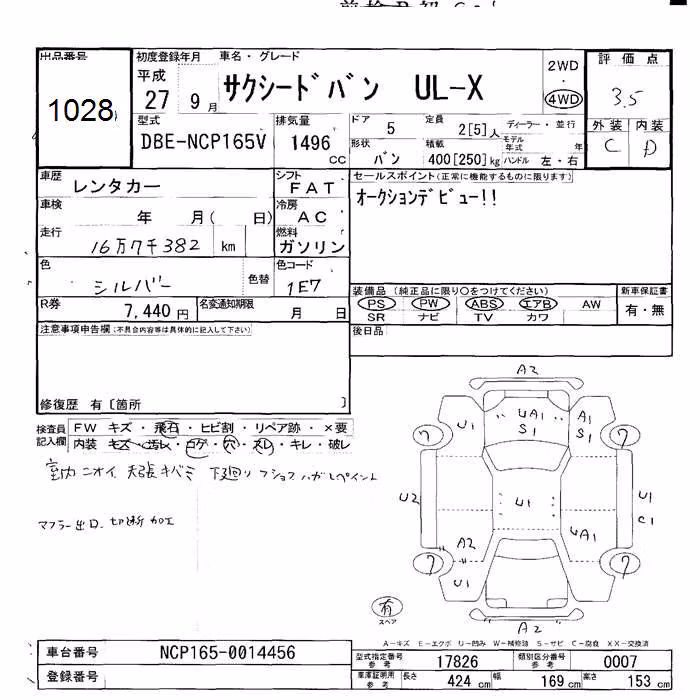 出品番号
1028
初度登録年月
平成
27 9月
車名・グレード
サクシードバン UL-X
2WD
・
4WD
評価点
3.5
外装 内装
C D
型式
DBE-NCP165V
排気量
1496
CC
ドア
5
定員
2[5]人
ディーラー・並行
モデル年式 年
形状
バン
積載
400[250]kg
ハンドル 左・右
車歴
レンタカー
シフト
FAT
セールスポイント(正常に機能するものに限ります)
オークションデビュー!!
車検
年 月( 日)
冷房
AC
走行
16万7千382 km
燃料
ガソリン
色
シルバー
色替
色コード
1E7
装備品 (純正品に限り○をつけてください)
PS PW ABS エアB AW
SR ナビ TV カワ
新車保証書
有・無
R券
7,440円
名変通知期限
月 日
後日品
注意事項申告欄(不具合内容等は具体的に記入して下さい)
修復歴 有〔箇所 〕
検査員記入欄
FW キズ・飛石・ヒビ割・リペア跡・×要
内装 キズ・汚レ・コゲ・穴・スレ・キレ・破レ
室内ニオイ 天張キバミ 下廻リ フショク ハガレペイント
マフラー出口 切断 加工
A2
U1
UA1
S1
A1
S1
7
7
U2
U1
U1
C1
A2
UA1
7
7
U1
A2
有
スペア
A-キズ E-エクボ U-凹み W-補修跡 S-サビ C-腐食 XX-交換済
車台番号
NCP165-0014456
登録番号
型式指定番号 参考
17826
類別区分番号 参考
0007
車庫証明用 参考
長さ 424 cm
幅 169 cm
高さ 153 cm